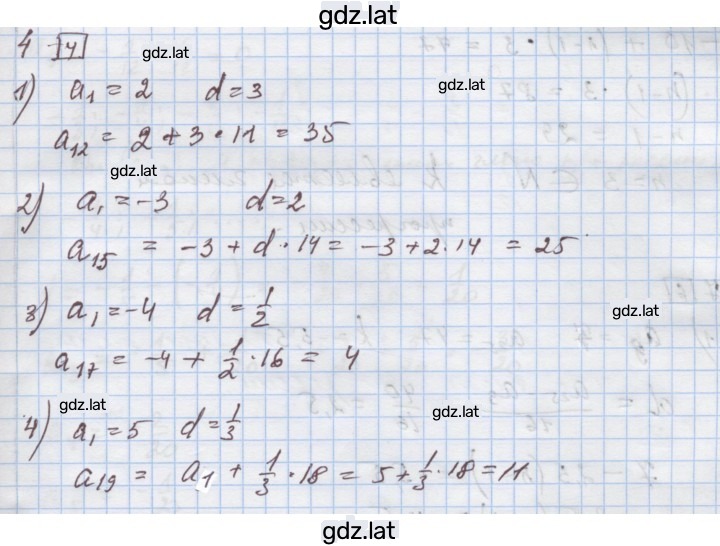 gdz.lat
4 4 gdz.lat
1) a₁ = 2 d = 3 gdz.lat
a₁₂ = 2 + 3 · 11 = 35
gdz.lat
2) a₁ = -3 d = 2
a₁₅ = -3 + d · 14 = -3 + 2 · 14 = 25
3) a₁ = -4 d = 1/2 gdz.lat
a₁₇ = -4 + 1/2 · 16 = 4
gdz.lat gdz.lat
4) a₁ = 5 d = 1/3
a₁₉ = a₁ + 1/3 · 18 = 5 + 1/3 · 18 = 11
gdz.lat